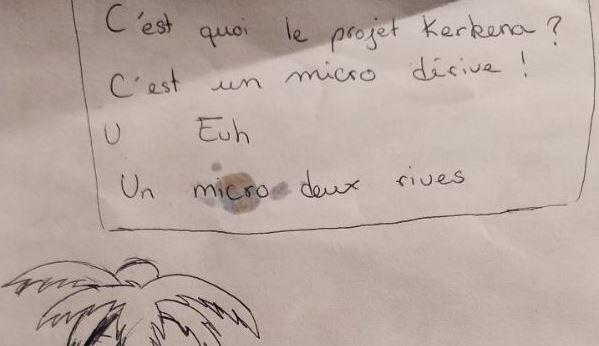 C'est quoi le projet Kerkena ?
C'est un micro dérive !
U Euh
Un micro deux rives